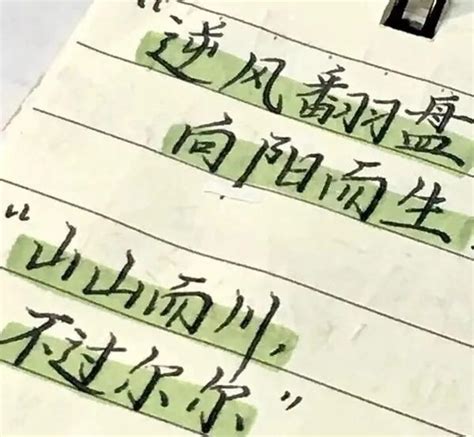 “逆风翻盘
向阳而生
“山山而川,
不过尔尔.”